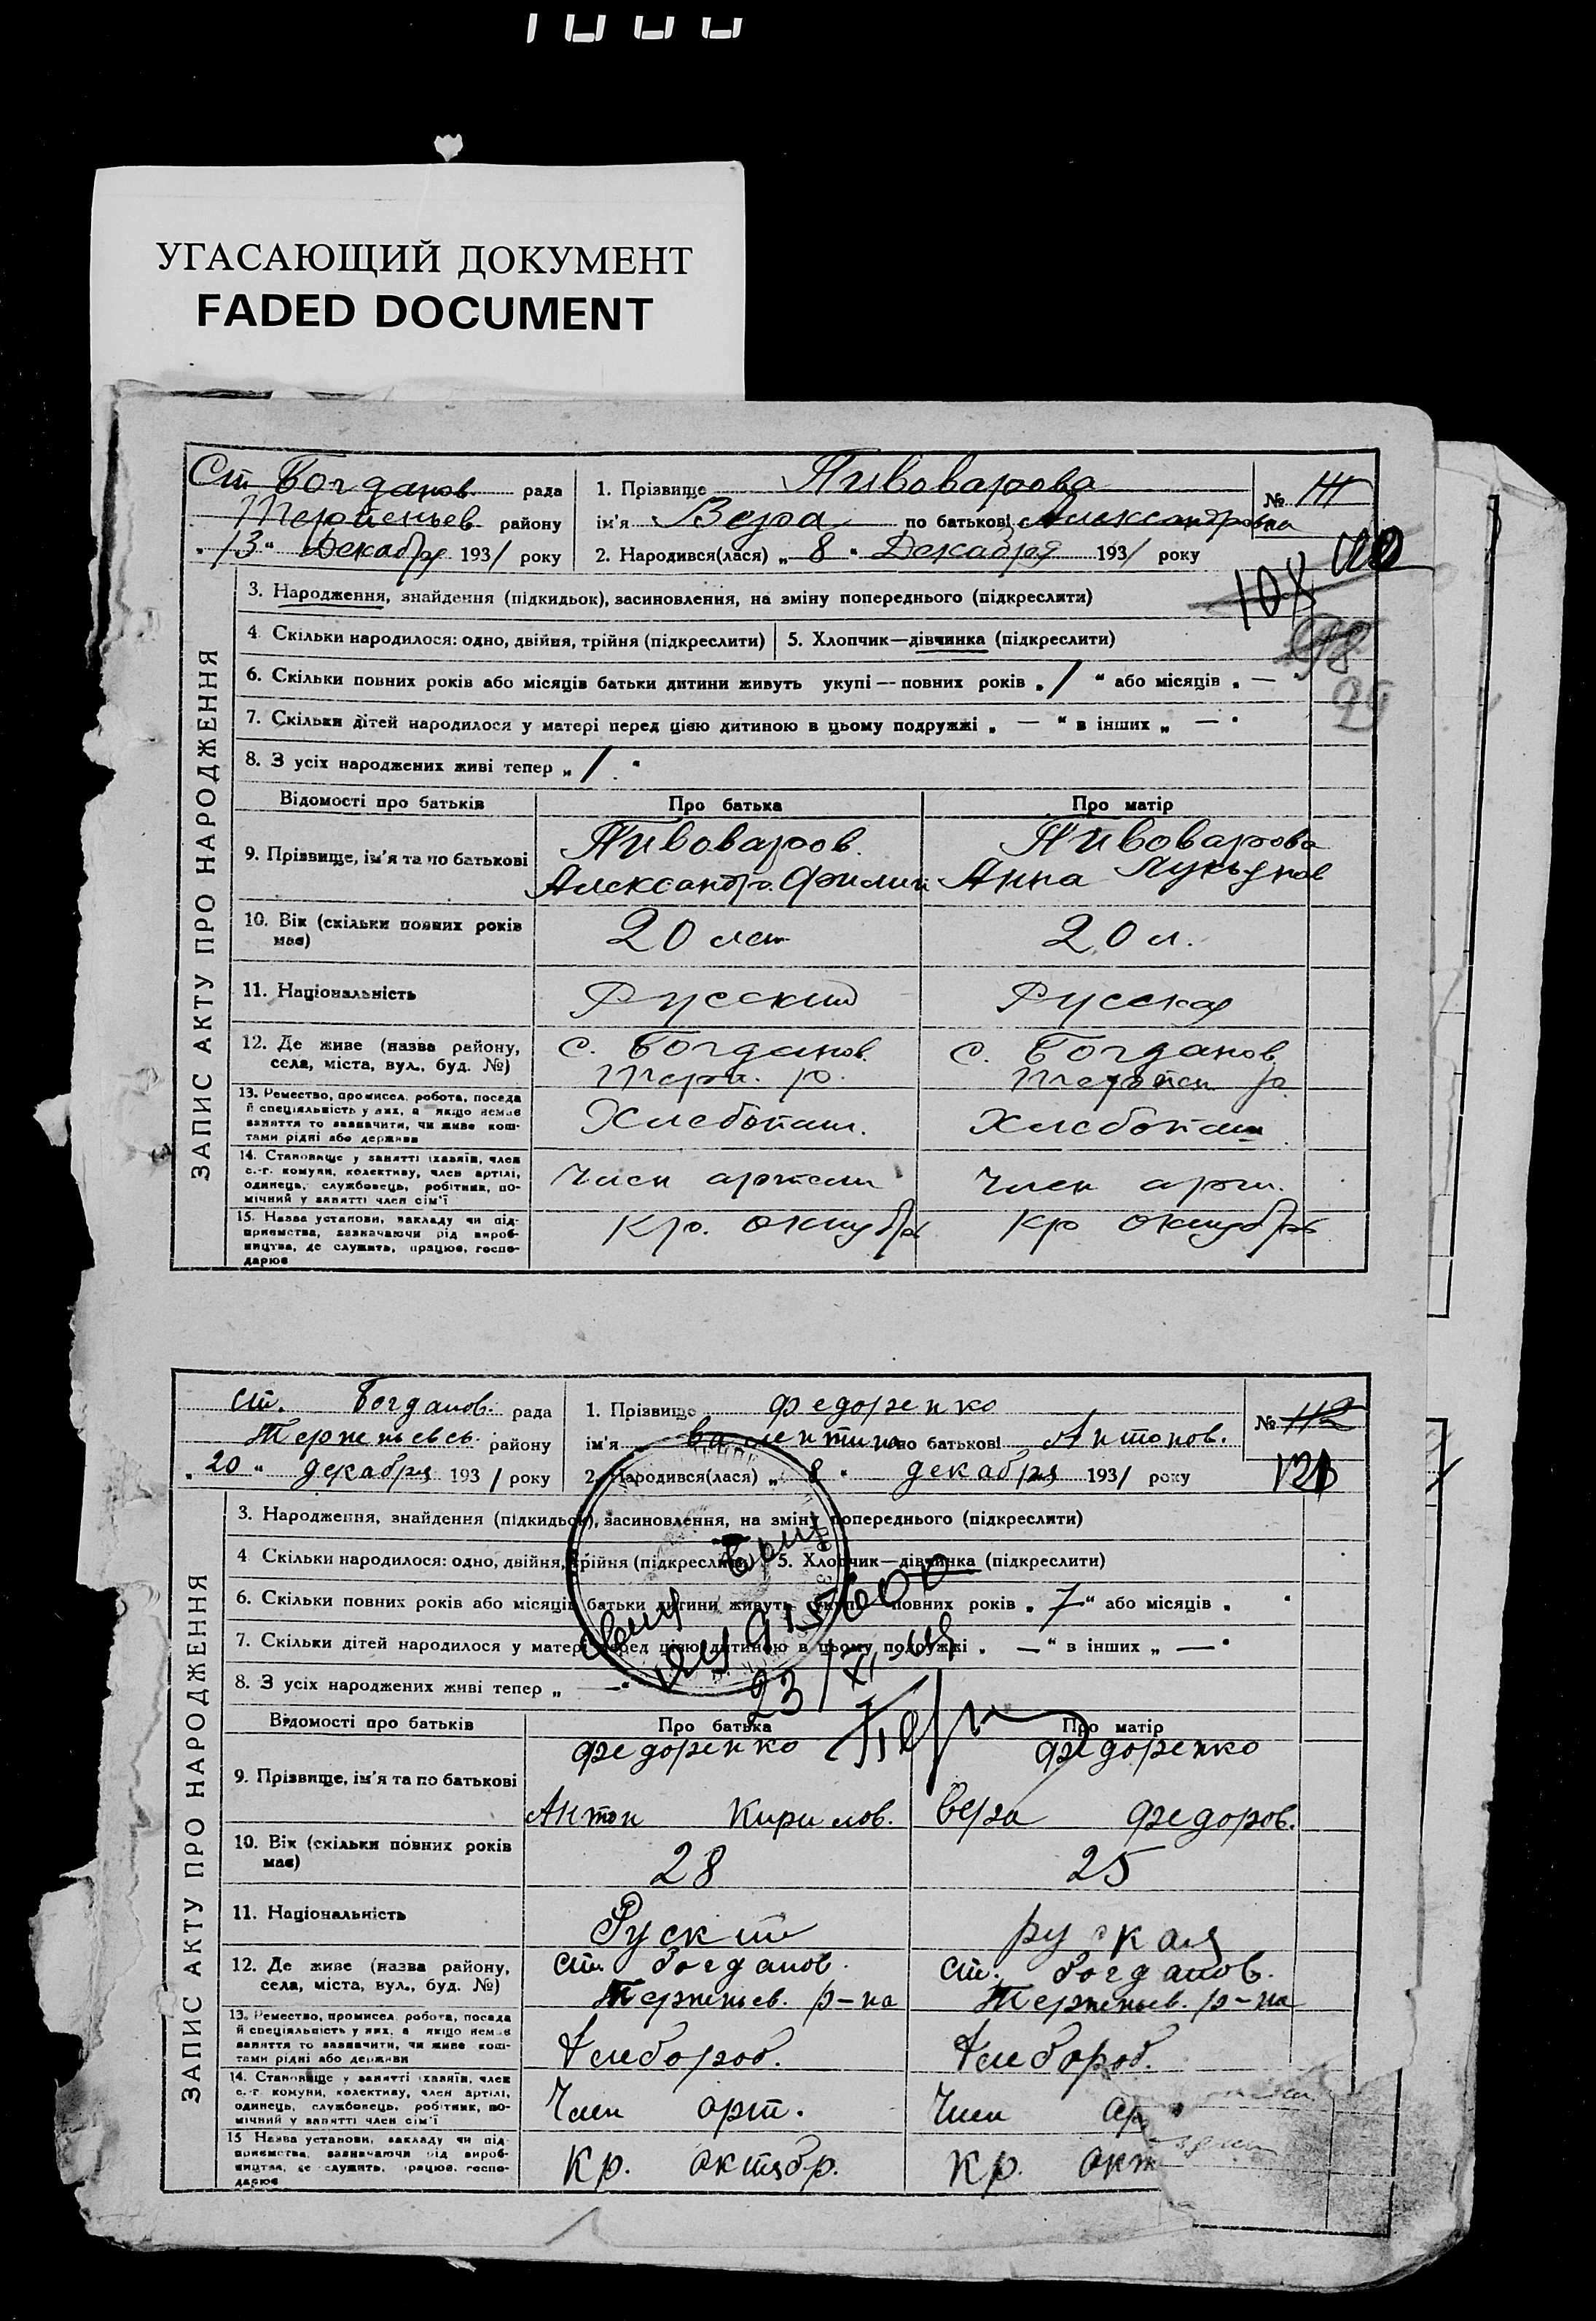 УГАСАЮЩИЙ ДОКУМЕНТ
FADED DOCUMENT
Ст Богданов. рада
Терпеньев району
„13“ Декабря 1931 року
1. Прізвище Пивоварова
ім'я Вера по батькові Александровна
2. Народився(лася) „8“ Декабря 1931 року
№
108
98
ЗАПИС АКТУ ПРО НАРОДЖЕННЯ
3. Народження, знайдення (підкидьок), засиновлення, на зміну попереднього (підкреслити)
4 Скільки народилося: одно, двійня, трійня (підкреслити) 5. Хлопчик—дівчинка (підкреслити)
6. Скільки повних років або місяців батьки дитини живуть укупі—повних років „1“ або місяців „—
7. Скільки дітей народилося у матері перед цією дитиною в цьому подружжі „—“ в інших „—“
8. З усіх народжених живі тепер „1“
Відомості про батьків Про батька Про матір
9. Прізвище, ім'я та по батькові
Пивоваров.
Александр Филип
Пивоварова
Анна Лукьянов
10. Вік (скільки повних років має)
20 лет
20 л.
11. Національність
Русский
Русская
12. Де живе (назва району, села, міста, вул., буд. №)
с. Богданов.
Терп. р.
с. Богданов.
Терпен р.
13. Ремество, промисел, робота, посада й спеціяльність у них, а якщо немає заняття то зазначити, чи живе коштами рідні або держави
Хлебопаш.
Хлебопаш
14. Становище у занятті (хазяїн, член с.-г. комуни, колективу, член артілі, одинець, службовець, робітник, помічний у занятті член сім'ї
Член артели
Член арт.
15. Назва установи, закладу чи підприємства, зазначаючи рід виробництва, де служить, працює, господарює
Кр. октубрь
Кр октубрь
ст. Богданов. рада
Терпеньевск. району
„20“ декабря 1931 року
1. Прізвище федоренко
ім'я валентина по батькові Антонов.
2. Народився(лася) „8“ декабря 1931 року
№ 112
121
ЗАПИС АКТУ ПРО НАРОДЖЕННЯ
3. Народження, знайдення (підкидьок), засиновлення, на зміну попереднього (підкреслити)
4 Скільки народилося: одно, двійня, трійня (підкреслити) 5. Хлопчик—дівчинка (підкреслити)
6. Скільки повних років або місяців батьки дитини живуть укупі повних років „7“ або місяців „
7. Скільки дітей народилося у матері перед цією дитиною в цьому подружжі „—“ в інших „—“
8. З усіх народжених живі тепер „—“
23/XI
Відомості про батьків Про батька Про матір
9. Прізвище, ім'я та по батькові
федоренко
Антон Кирилов.
федоренко
вера федоров.
10. Вік (скільки повних років має)
28
25
11. Національність
Руский
руская
12. Де живе (назва району, села, міста, вул., буд. №)
ст. богданов.
Терпеньев. р-на
ст. богданов.
Терпеньев. р-на
13. Ремество, промисел, робота, посада й спеціяльність у них, а якщо немає заняття то зазначити, чи живе коштами рідні або держави
Хлебороб.
Хлебороб.
14. Становище у занятті (хазяїн, член с.-г. комуни, колективу, член артілі, одинець, службовець, робітник, помічний у занятті член сім'ї
Член арт.
Член ар
15 Назва установи, закладу чи підприємства, зазначаючи рід виробництва, де служить, працює, господарює
Кр. октябр.
Кр. окт